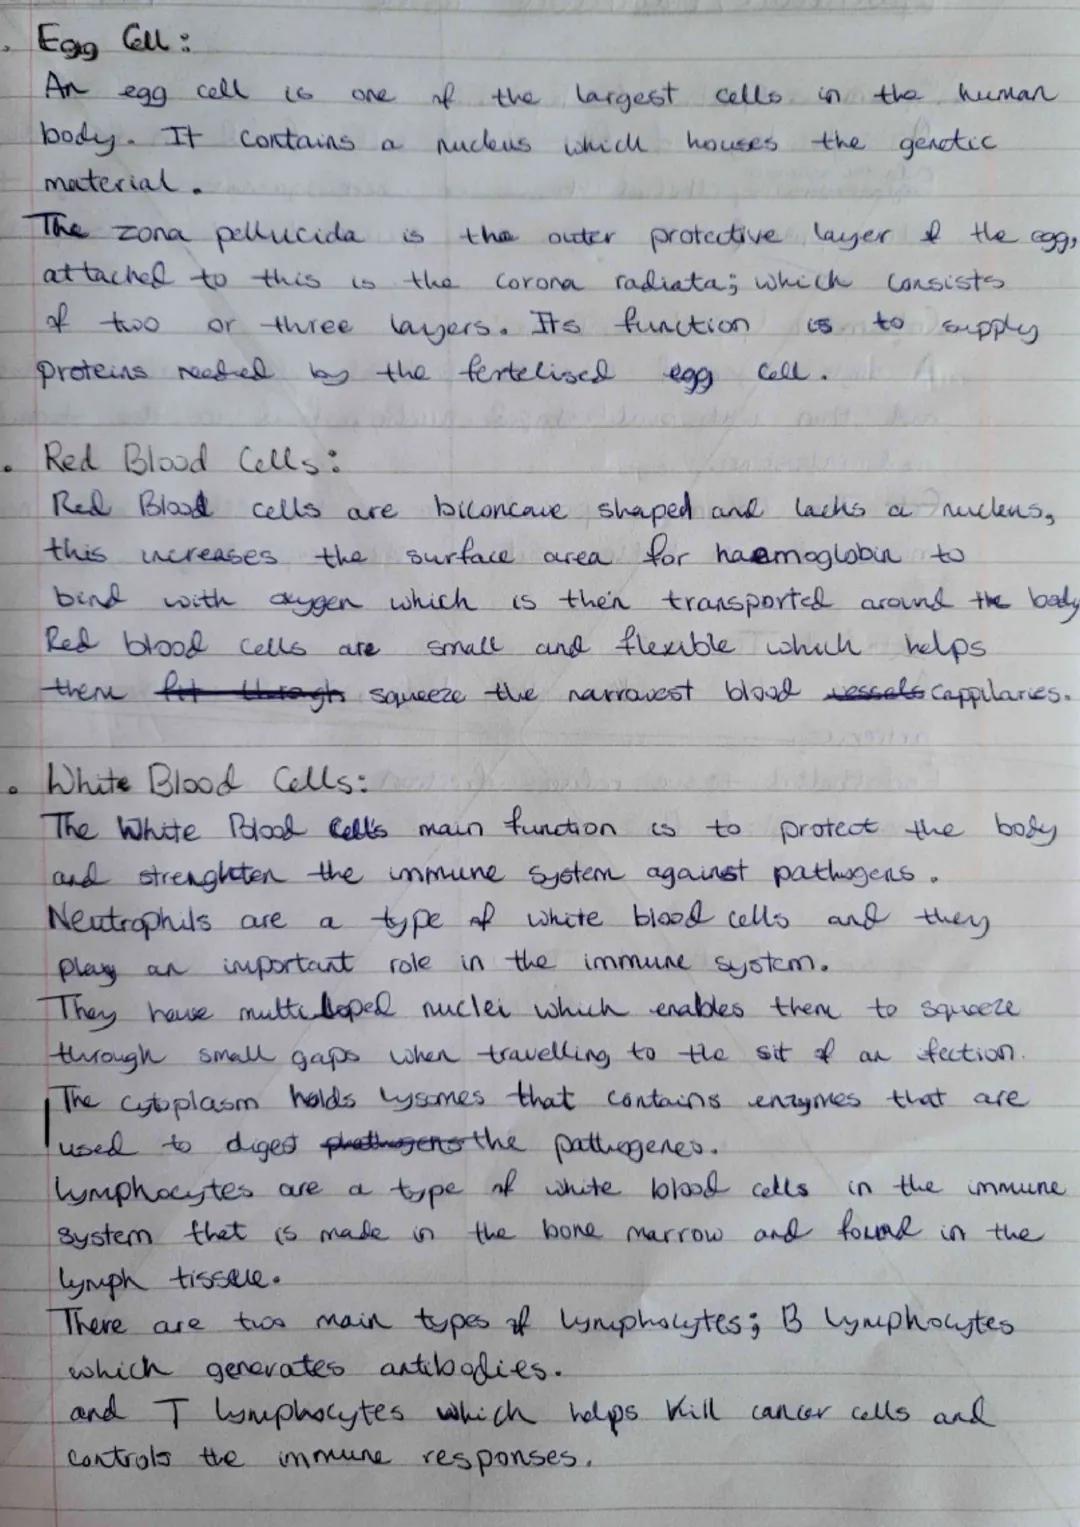 • Egg Cell:
An egg cell is one of the largest cells in the human
body. It contains a nucleus which houses the genetic
material.
The zona pellucida is the outer protective layer of the egg,
attached to this is the corona radiata; which consists
of two or three layers. Its function is to supply
proteins needed by the fertelised egg cell.
• Red Blood Cells:
Red Blood cells are biconcave shaped and lacks a nucleus,
this increases the surface area for haemoglobin to
bind with oxygen which is then transported around the body
Red blood cells are small and flexible which helps
them fit through squeeze the narrowest blood vessels cappilaries.
• White Blood Cells:
The White Blood Cell's main function is to protect the body
and strenghten the immune system against pathogens.
Neutrophils are a type of white blood cells and they
play an important role in the immune system.
They have multi loped nuclei which enables them to squeeze
through small gaps when travelling to the sit of an fection.
The cytoplasm holds lysomes that contains enzymes that are
used to digest phathogens the pathogenes.
Lymphocytes are a type of white blood cells in the immune
system that is made in the bone marrow and found in the
lymph tissue.
There are two main types of lymphocytes; B lymphocytes
which generates antibodies.
and T lymphocytes which helps kill cancer cells and
controls the immune responses.